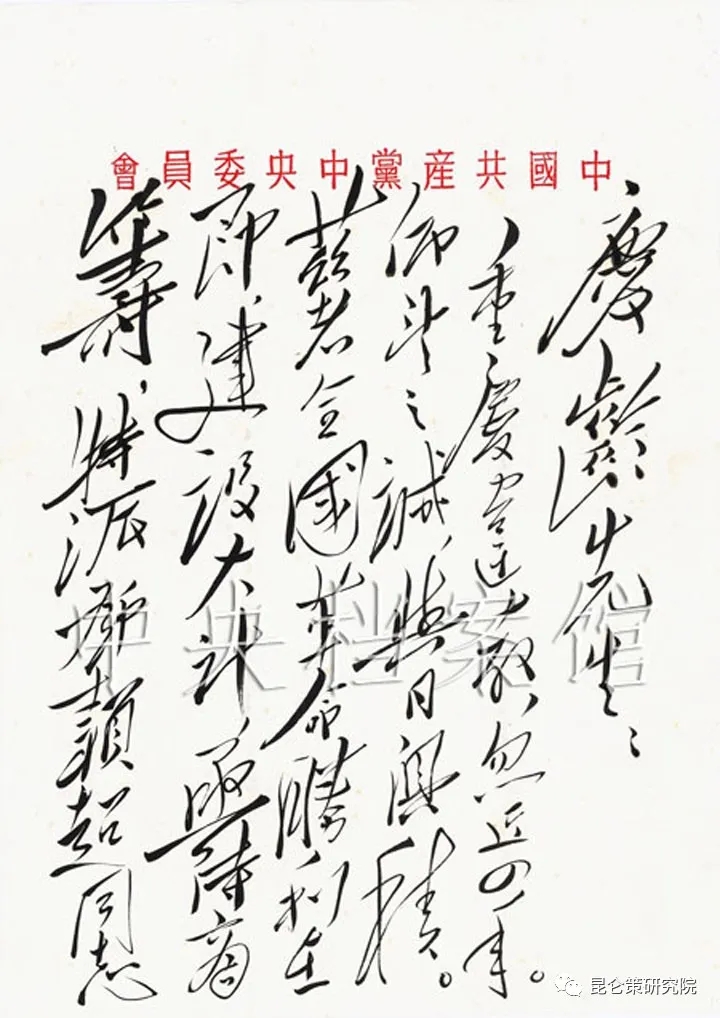 中國共産黨中央委員會
慶齡先生：
重慶違教，忽近四年。
仰望之誠，與日俱積。
茲者全國革命勝利在
即，建設大計，亟待商
籌，特派鄧穎超同志
中央档案馆
昆仑策研究院